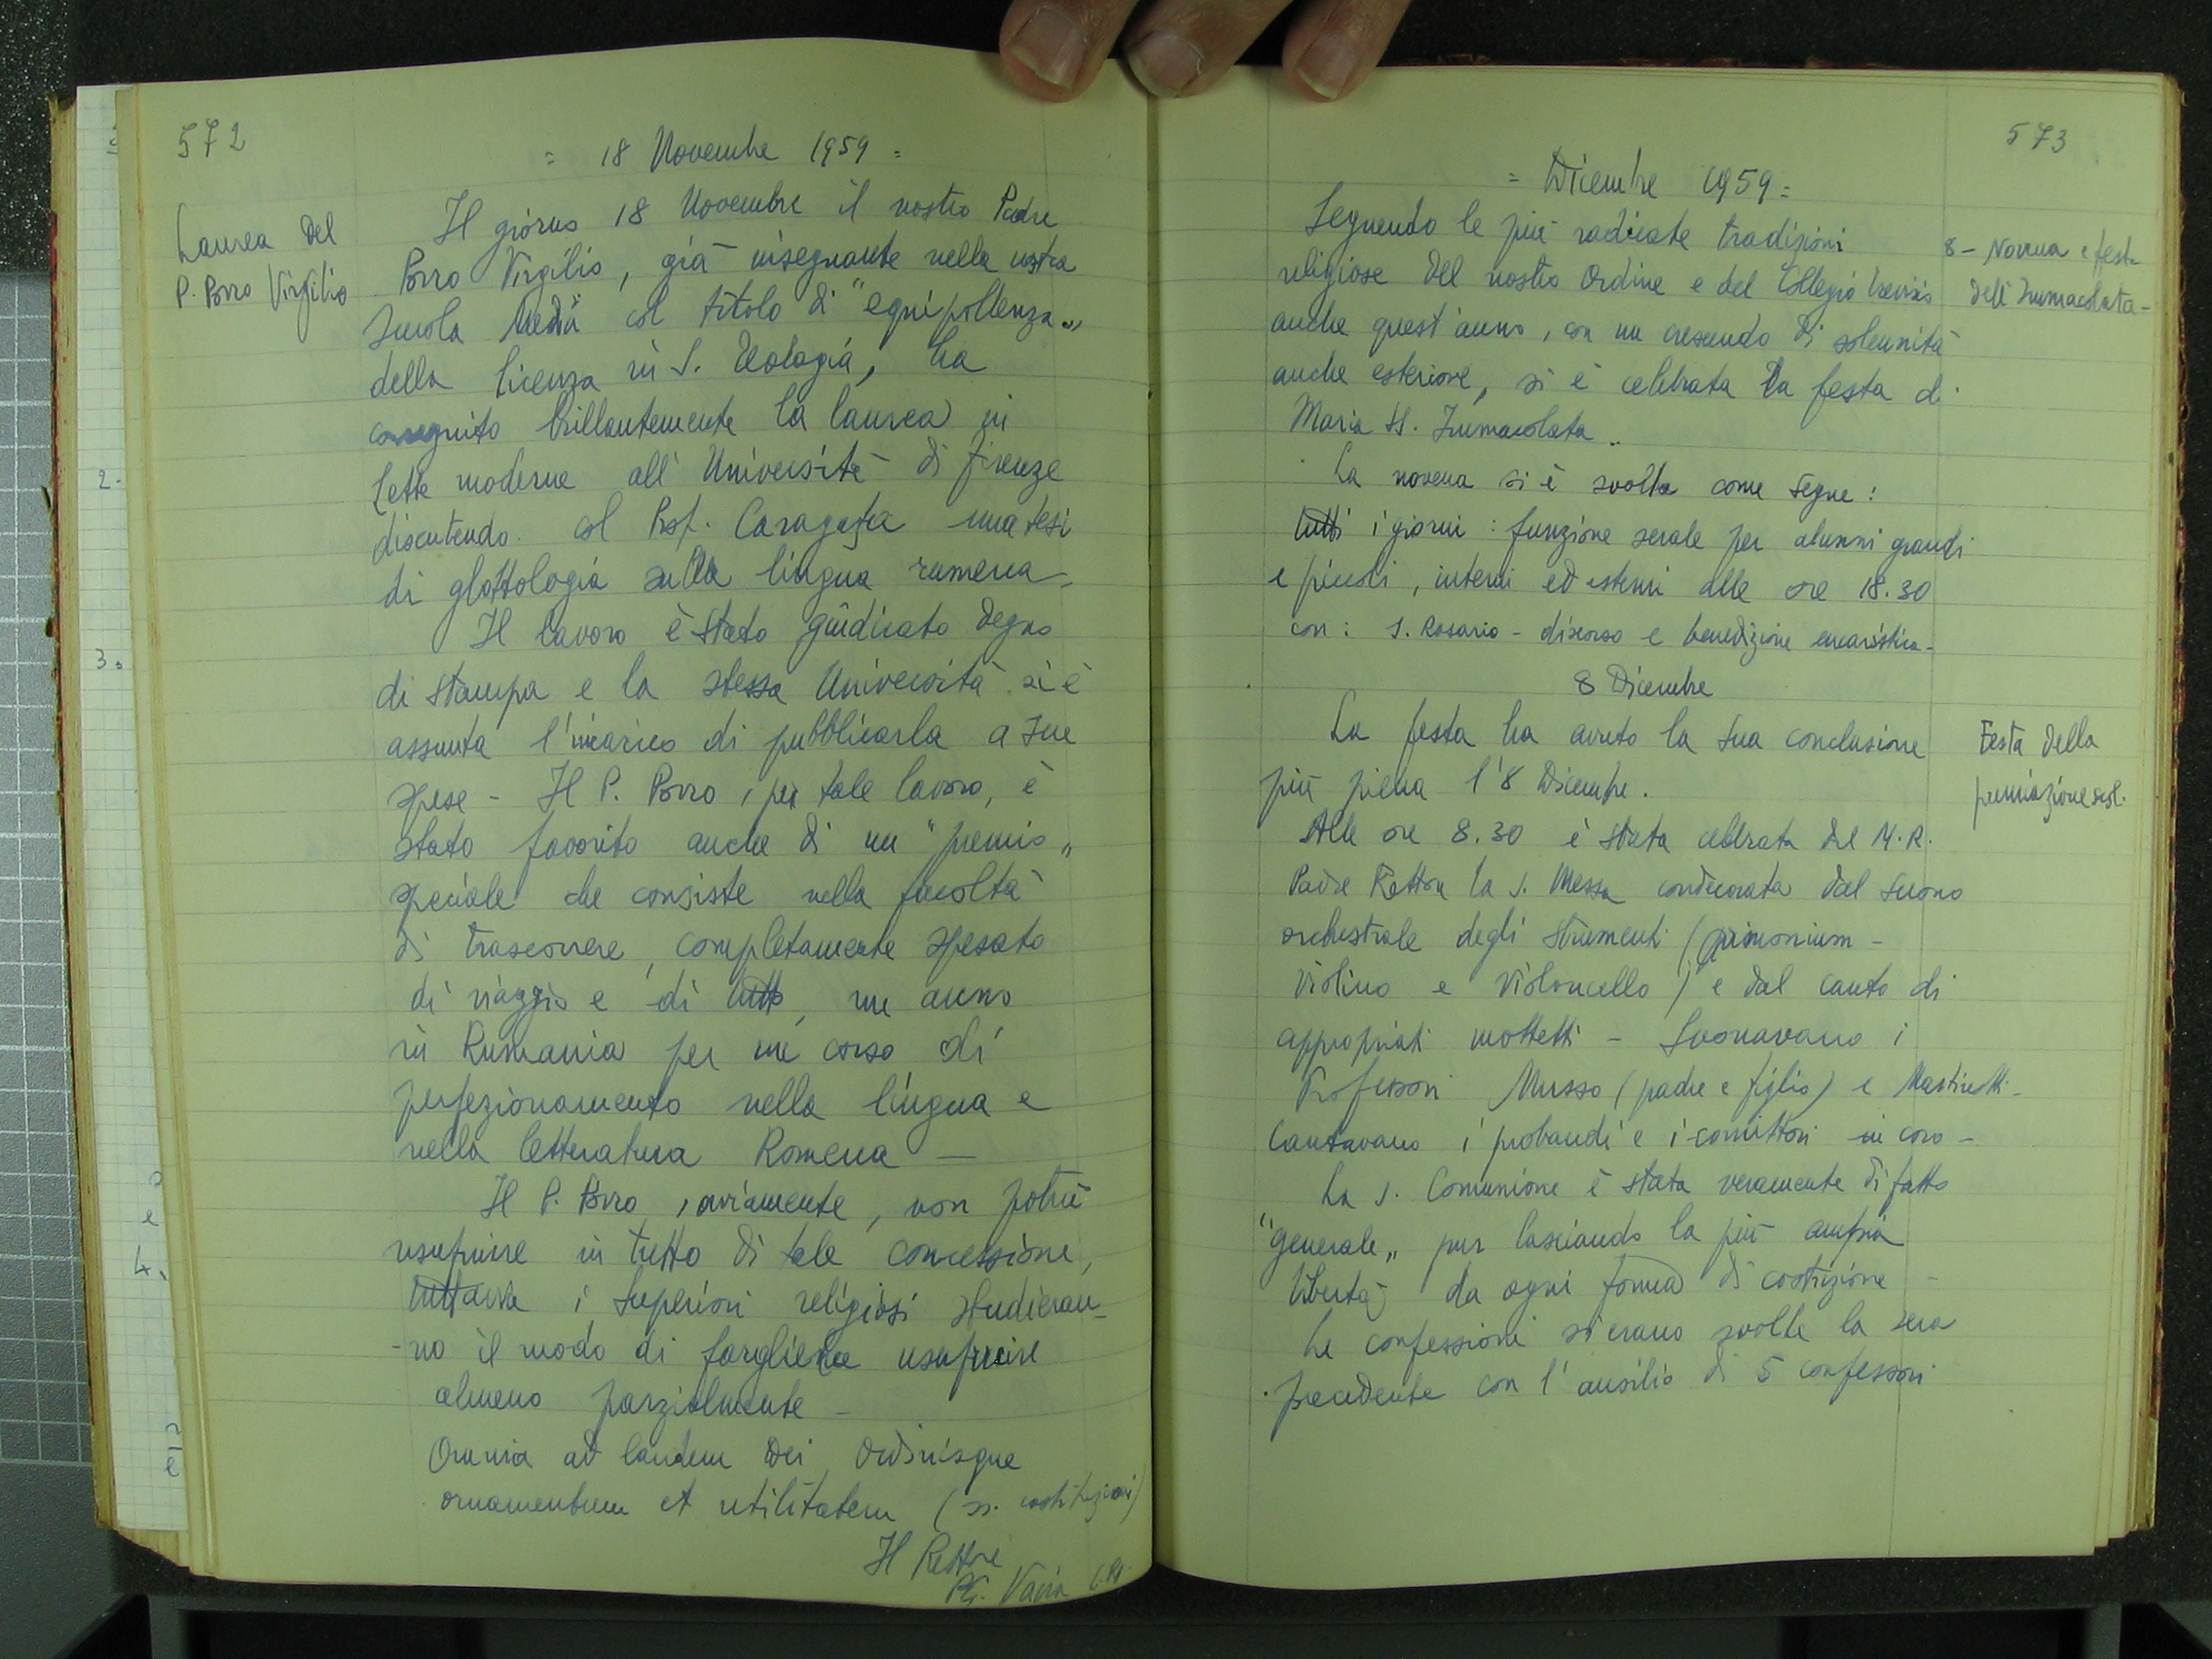 572
= 18 Novembre 1959 =
Laurea del
P. Porro Virgilio
Il giorno 18 Novembre il nostro Padre
Porro Virgilio, già insegnante nella nostra
Scuola Media col titolo di "equipollenza"
della licenza in S. Teologia, ha
conseguito brillantemente la laurea in
Lettere moderne all'Università di Firenze
discutendo col Prof. Caragaţa una tesi
di glottologia sulla lingua rumena -
Il lavoro è stato giudicato degno
di stampa e la stessa Università si è
assunta l'incarico di pubblicarla a sue
spese - Il P. Porro, per tale lavoro, è
stato favorito anche di un "premio"
speciale che consiste nella facoltà
di trascorrere, completamente spesato
di viaggio e di tutto, un anno
in Rumania per un corso di
perfezionamento nella lingua e
nella letteratura Romena —
Il P. Porro, ovviamente, non potrà
usufruire in tutto di tale concessione,
tuttavia i Superiori religiosi studieran-
-no il modo di fargliene usufruire
almeno parzialmente -
Omnia ad laudem Dei Ordinisque
ornamentum et utilitatem (ss. costituzioni)
Il Rettore
PG. Vaira c.r.s.
573
= Dicembre 1959 =
8 - Novena e festa
dell'Immacolata -
Seguendo le più radicate tradizioni
religiose del nostro Ordine e del Collegio Trevisio
anche quest'anno, con un crescendo di solennità
anche esteriore, si è celebrata la festa di
Maria SS. Immacolata.
La novena si è svolta come segue:
tutti i giorni: funzione serale per alunni grandi
e piccoli, interni ed esterni alle ore 18.30
con: S. Rosario - discorso e benedizione eucaristica -
8 Dicembre
Festa della
premiazione scol.
La festa ha avuto la sua conclusione
più piena l'8 Dicembre.
Alle ore 8.30 è stata celebrata dal M.R.
Padre Rettore la S. Messa condecorata dal suono
orchestrale degli strumenti (armonium -
violino e violoncello) e dal canto di
appropriati mottetti - Suonavano i
Professori Musso (padre e figlio) e Martinotti -
Cantavano i probandi e i convittori in coro -
La S. Comunione è stata veramente di fatto
"generale" pur lasciando la più ampia
libertà da ogni forma di costrizione -
Le confessioni si erano svolte la sera
precedente con l'ausilio di 5 confessori
2.
3.
e
4.